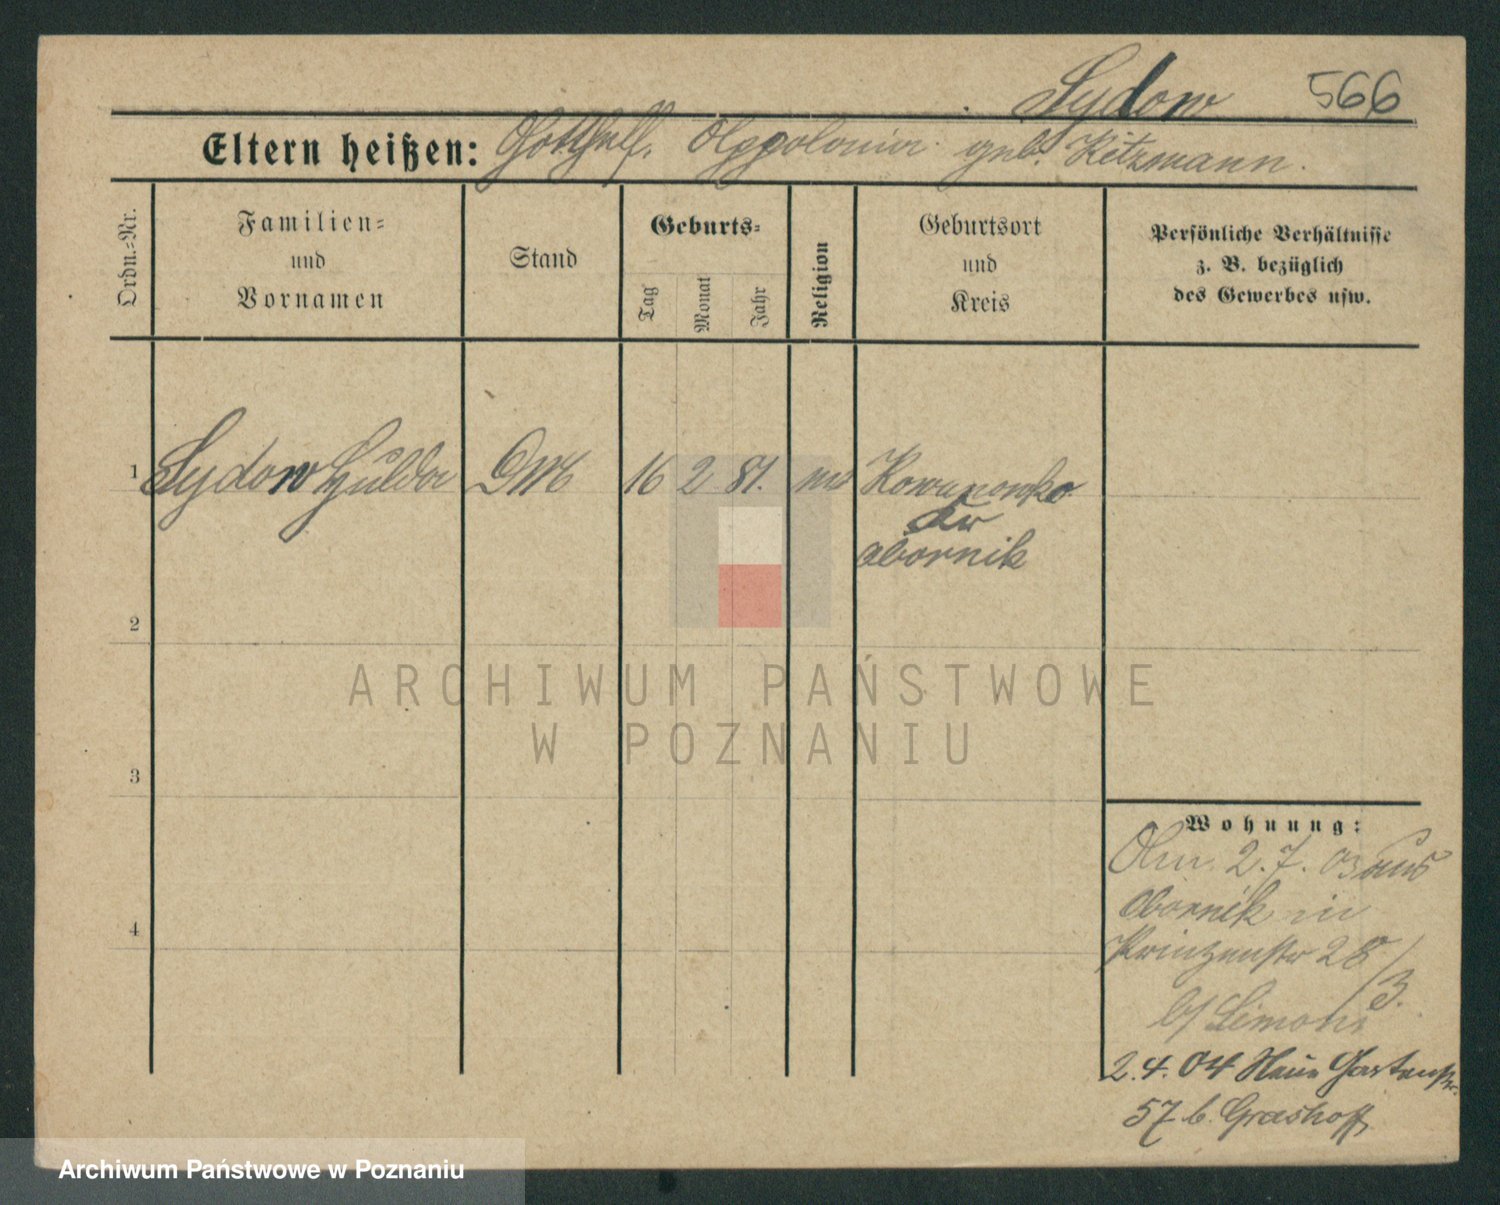 Sydow 566
Eltern heißen: Gotthilf, Appolonia geb. Kitzmann.
Ordn.=Nr.
Familien=
und
Vornamen
Stand
Geburts=
Tag
Monat
Jahr
Religion
Geburtsort
und
Kreis
Persönliche Verhältnisse
z. B. bezüglich
des Gewerbes usw.
1 Sydow Hulda 16 2 81. Kowanowko
Kr
Obornik
2
3
4
Wohnung:
Am 2.7.03 aus
Obornik in
Prinzenstr 28/3.
b/ Simons
2.4.04 Neue Gartenstr.
57 b. Grashoff
ARCHIWUM PAŃSTWOWE
W POZNANIU
Archiwum Państwowe w Poznaniu